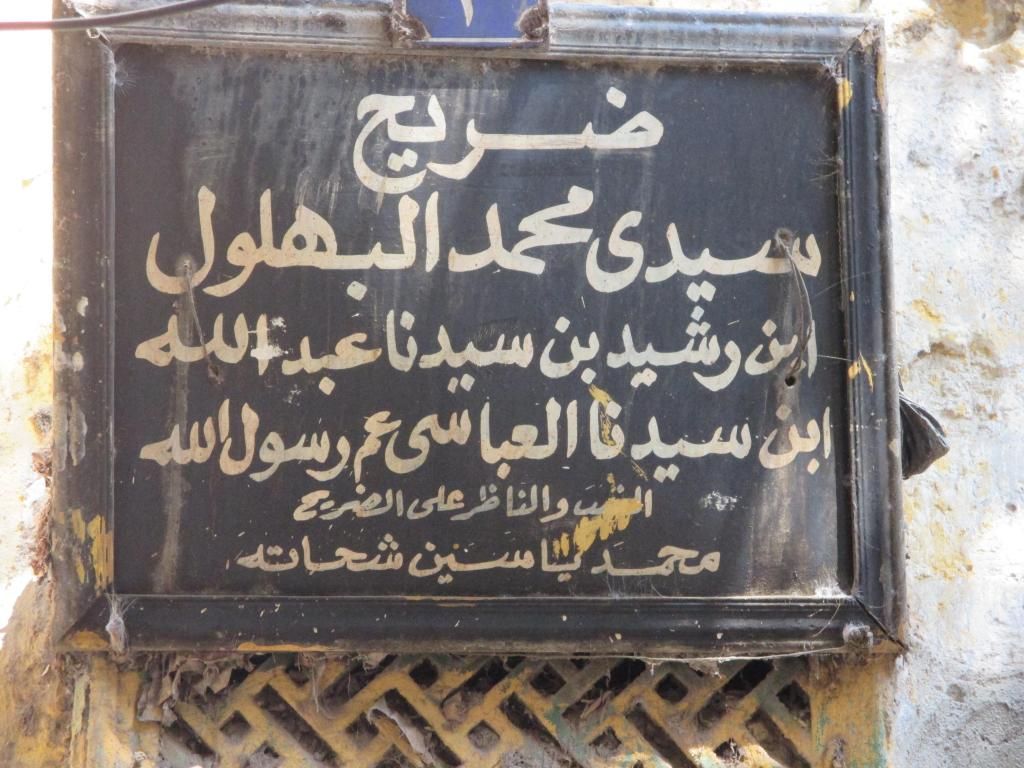 ١
ضريح
سيدى محمد البهلول
ابن رشيد بن سيدنا عبد الله
ابن سيدنا العباسى عم رسول الله
والناظر على الضريح
محمد ياسين شحاته